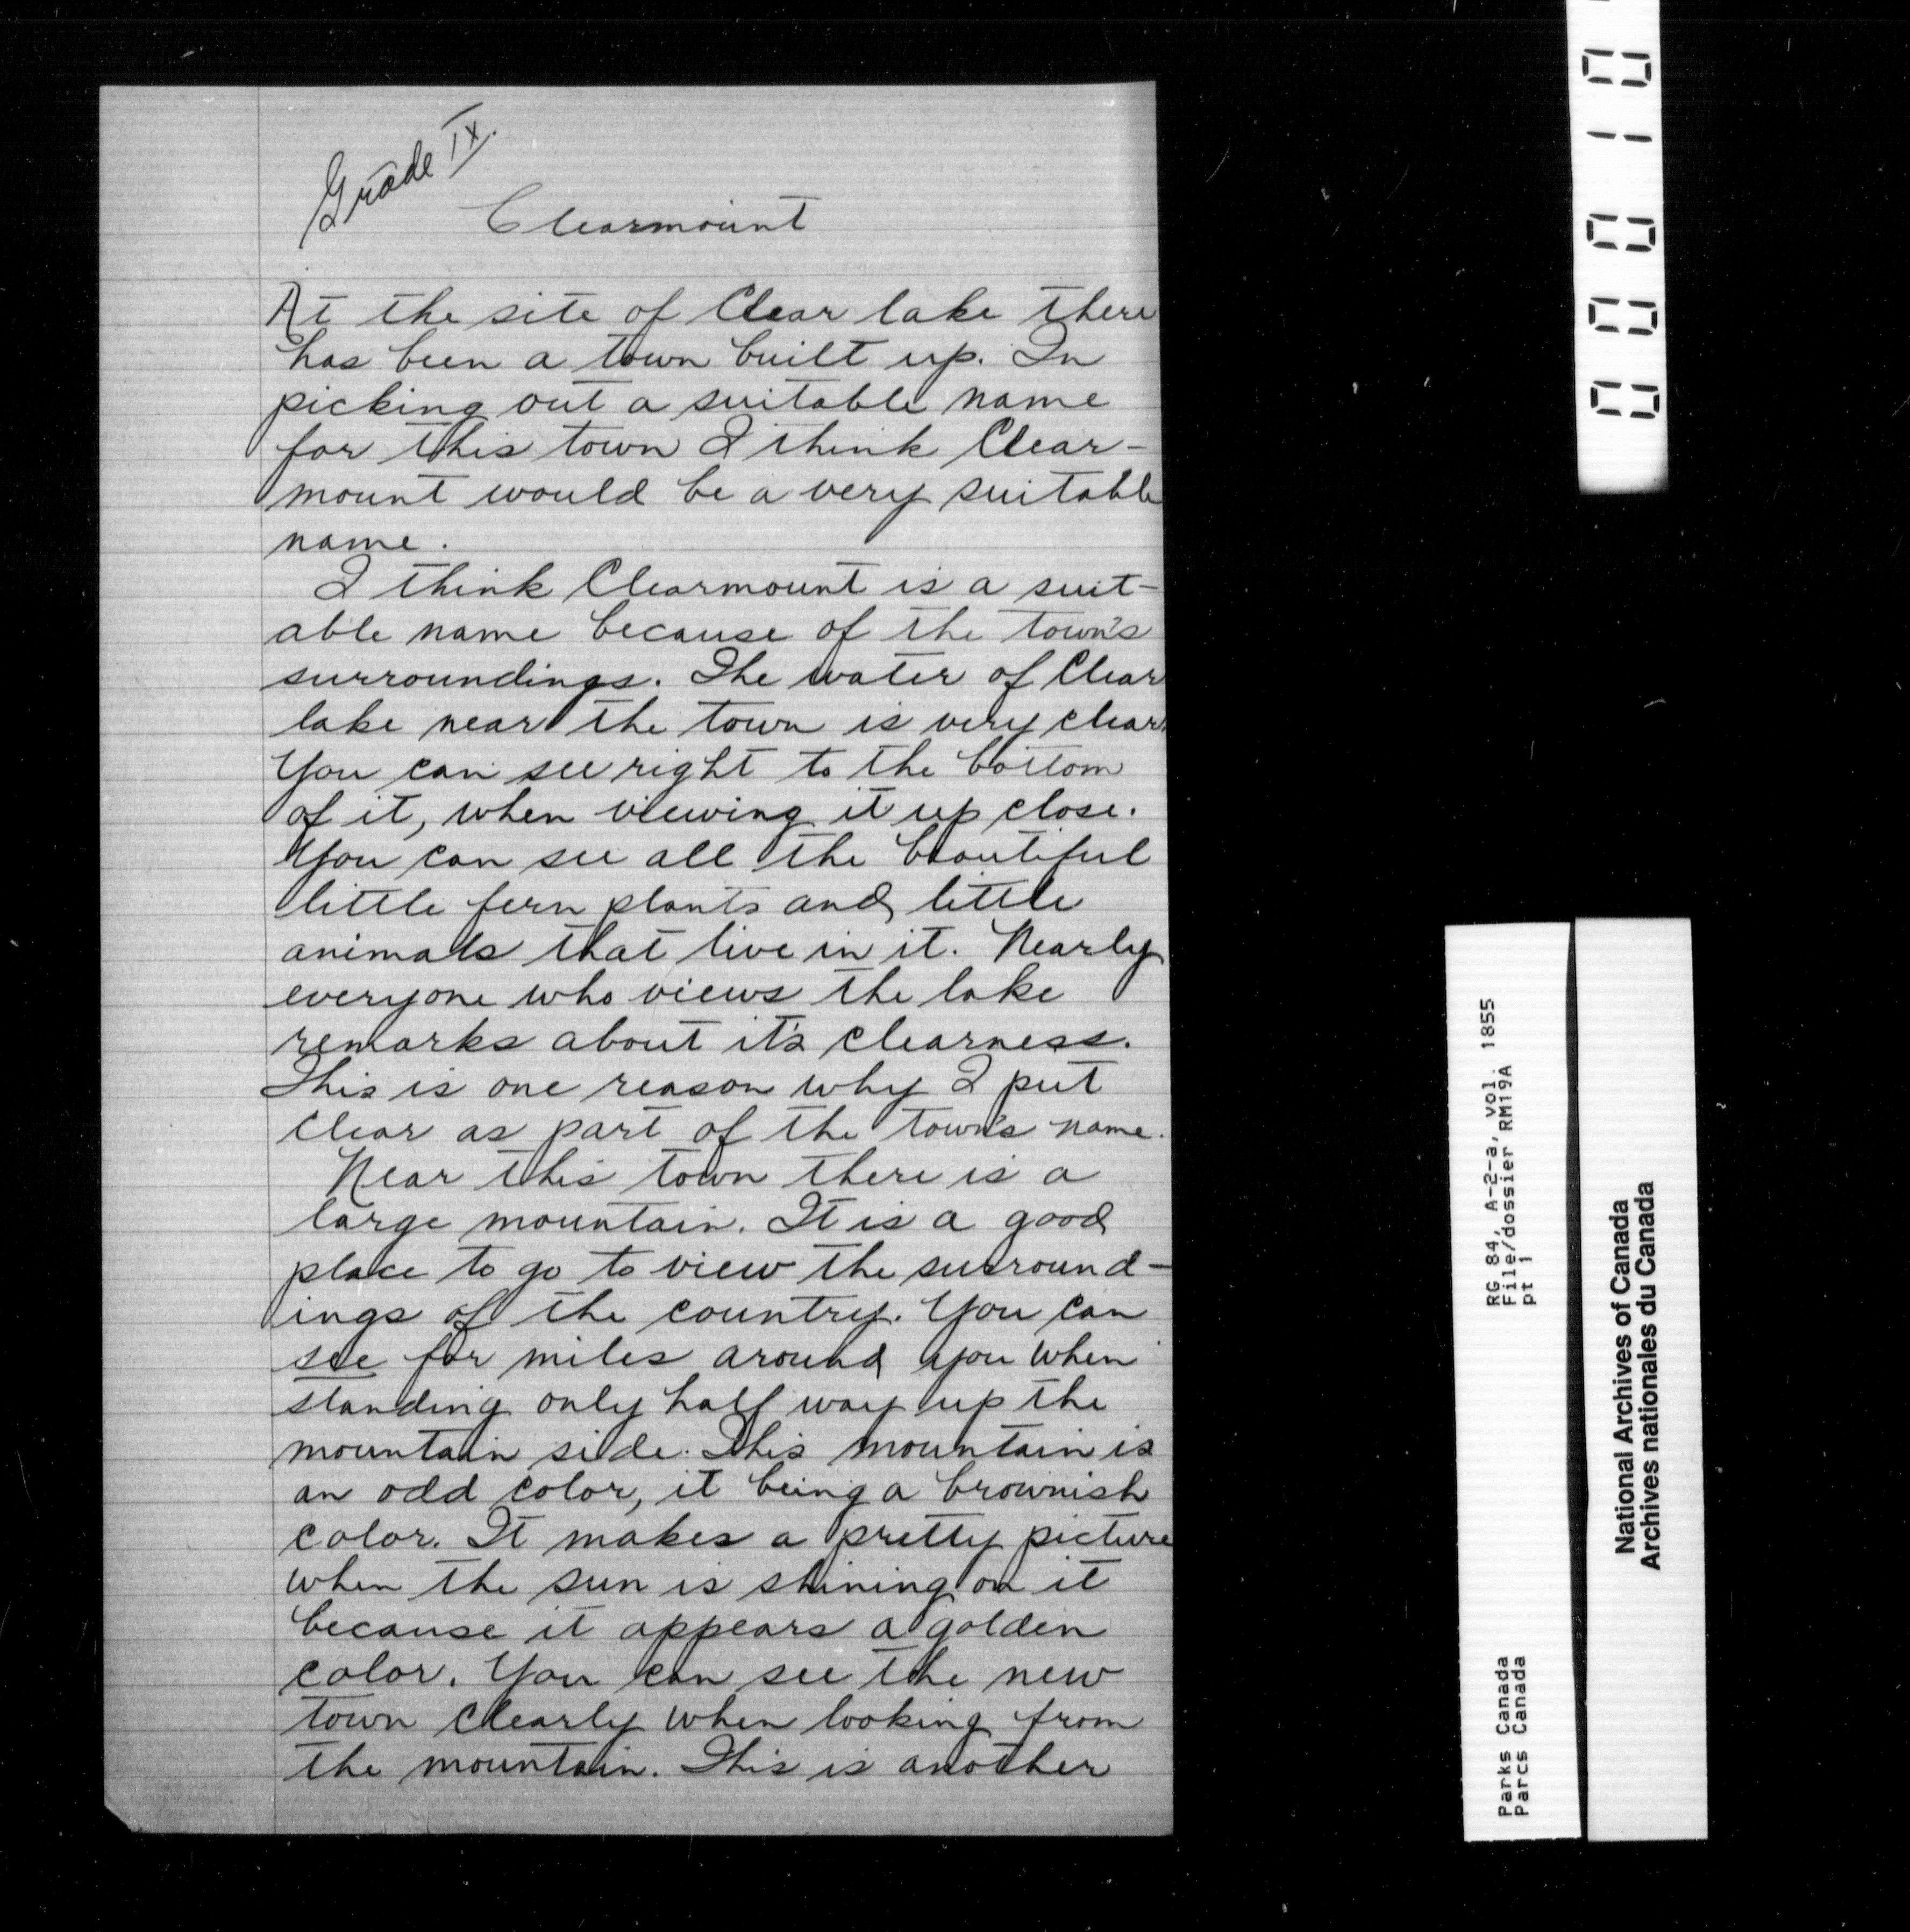 Grade IX.
Clearmount
At the site of Clear lake there
has been a town built up. In
picking out a suitable name
for this town I think Clear-
mount would be a very suitable
name.
I think Clearmount is a suit-
able name because of the town's
surroundings. The water of Clear
lake near the town is very clear.
You can see right to the bottom
of it, when viewing it up close.
You can see all the beautiful
little fern plants and little
animals that live in it. Nearly
everyone who views the lake
remarks about it's clearness.
This is one reason why I put
Clear as part of the town's name.
Near this town there is a
large mountain. It is a good
place to go to view the surround-
ings of the country. You can
see for miles around you when
standing only half way up the
mountain side. This mountain is
an odd color, it being a brownish
color. It makes a pretty picture
when the sun is shining on it
because it appears a golden
color. You can see the new
town clearly when looking from
the mountain. This is another
00010
RG 84, A-2-a, vol. 1855
File/dossier RM19A
pt 1
Parks Canada
Parcs Canada
National Archives of Canada
Archives nationales du Canada